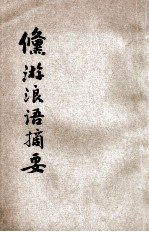 儵游浪语摘要